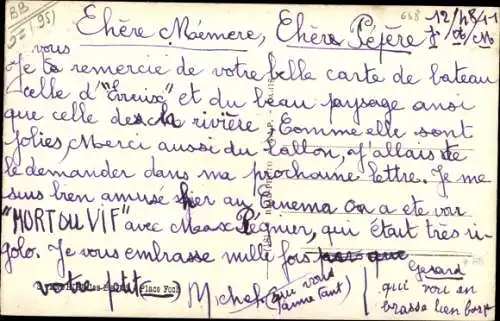 BB
(95)
658 12/48/1-1
Chère Mémere, Chère Pépère
vous
Je remercie de votre belle carte de bateau
celle d'"Evreux" et du beau paysage ansi
que celle de la rivière, Comme elle sont
jolies, Merci aussi du ballon, j'allais te
le demander dans ma prochaine lettre. Je me
suis bien amusé hier au Cinema On a ete voir
"MORT OU VIF" avec Max Régnier, qui était très ri-
golo. Je vous embrasse mille fois
votre petit Michel (qui vous
aime tant)
Gerard
qui vou en
brasse bien fort
(Place Foch)